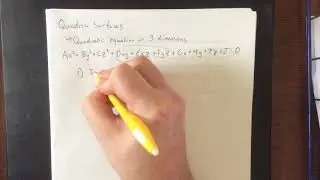 Quadric Surfaces
↳ Quadratic equation in 3 dimensions
Ax²+By²+Cz²+Dxy+Exz+Fyz+Gx+Hy+Iz+J=0
1) I